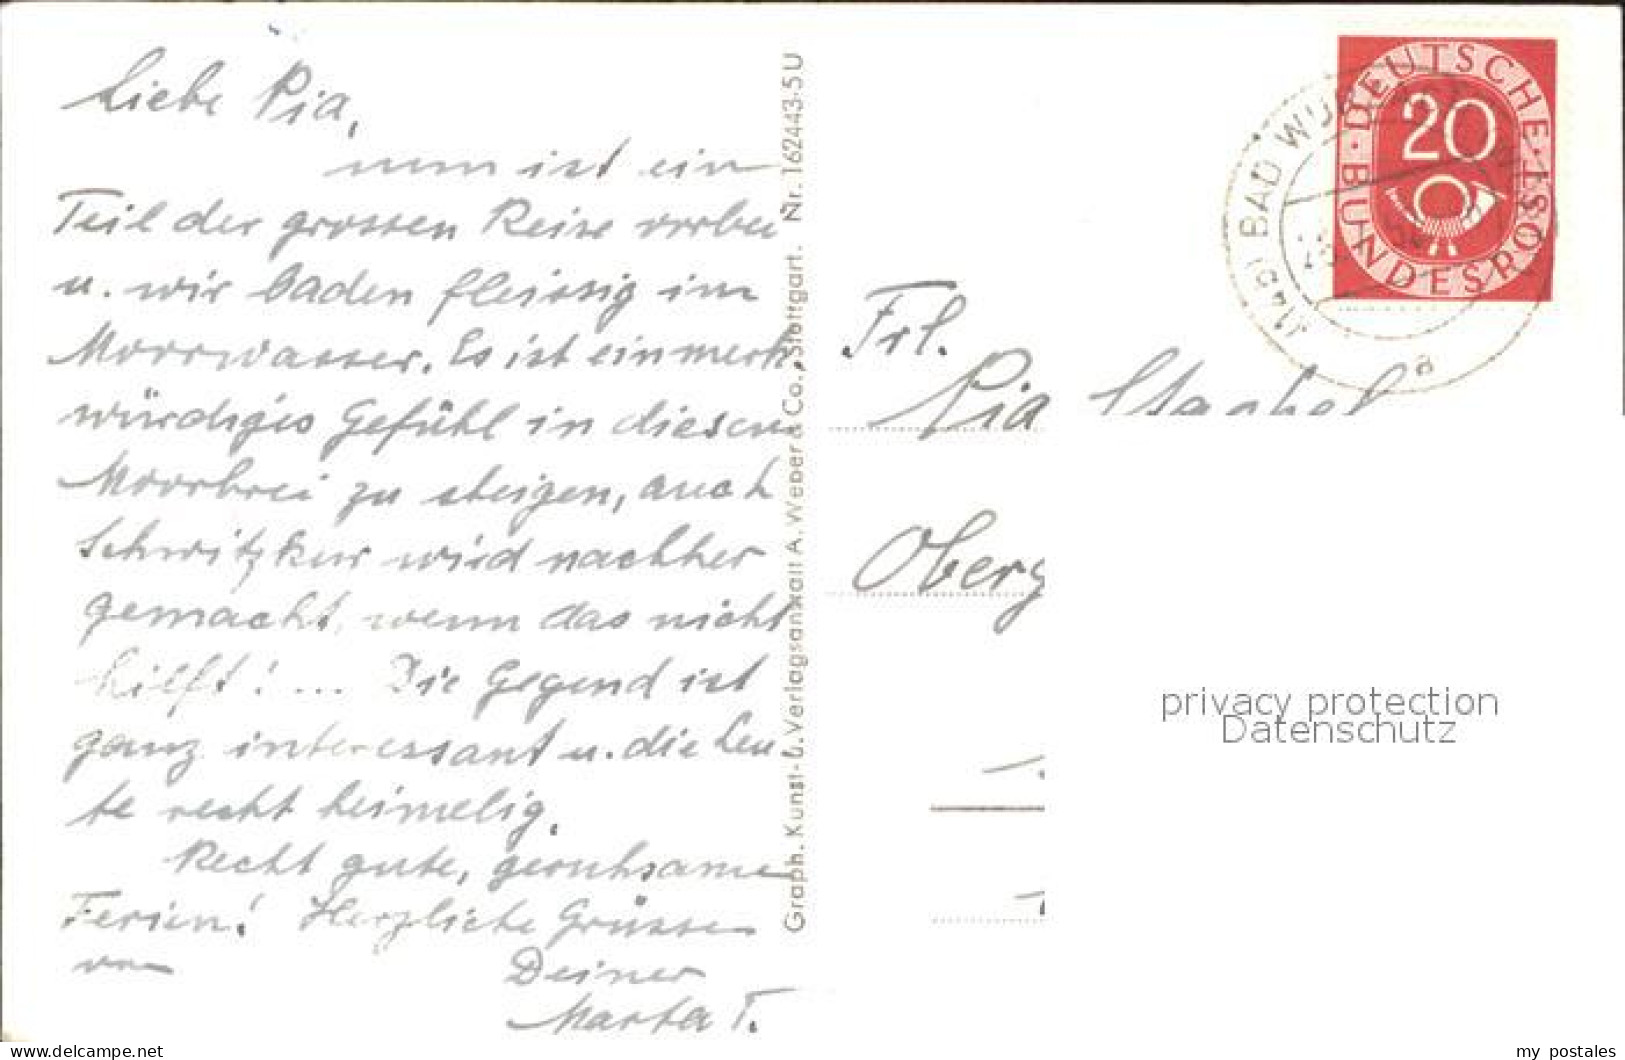 Liebe Pia,
nun ist ein
Teil der grossen Reise vorbei
u. wir baden fleissig im
Moorwasser. Es ist ein merk-
würdiges Gefühl in diesen
Moorbrei zu steigen, auch
Schwitzkur wird nachher
gemacht, wenn das nicht
hilft! ... Die Gegend ist
ganz interessant u. die Leu-
te recht heimelig.
Recht gute, geruhsame
Ferien! Herzliche Grüsse
von Deiner
Marta T.
Graph. Kunst- u. Verlagsanstalt A. Weber & Co., Stuttgart. Nr. 162443-5U
DEUTSCHE BUNDESPOST
20
(14b) BAD
a
Frl.
Pia
Oberg
privacy protection
Datenschutz
delcampe.net
my_postales